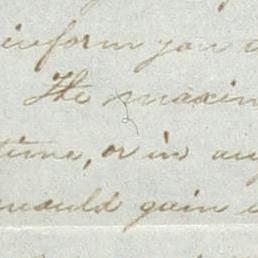 inform you
The maxim
time, or in
would gain